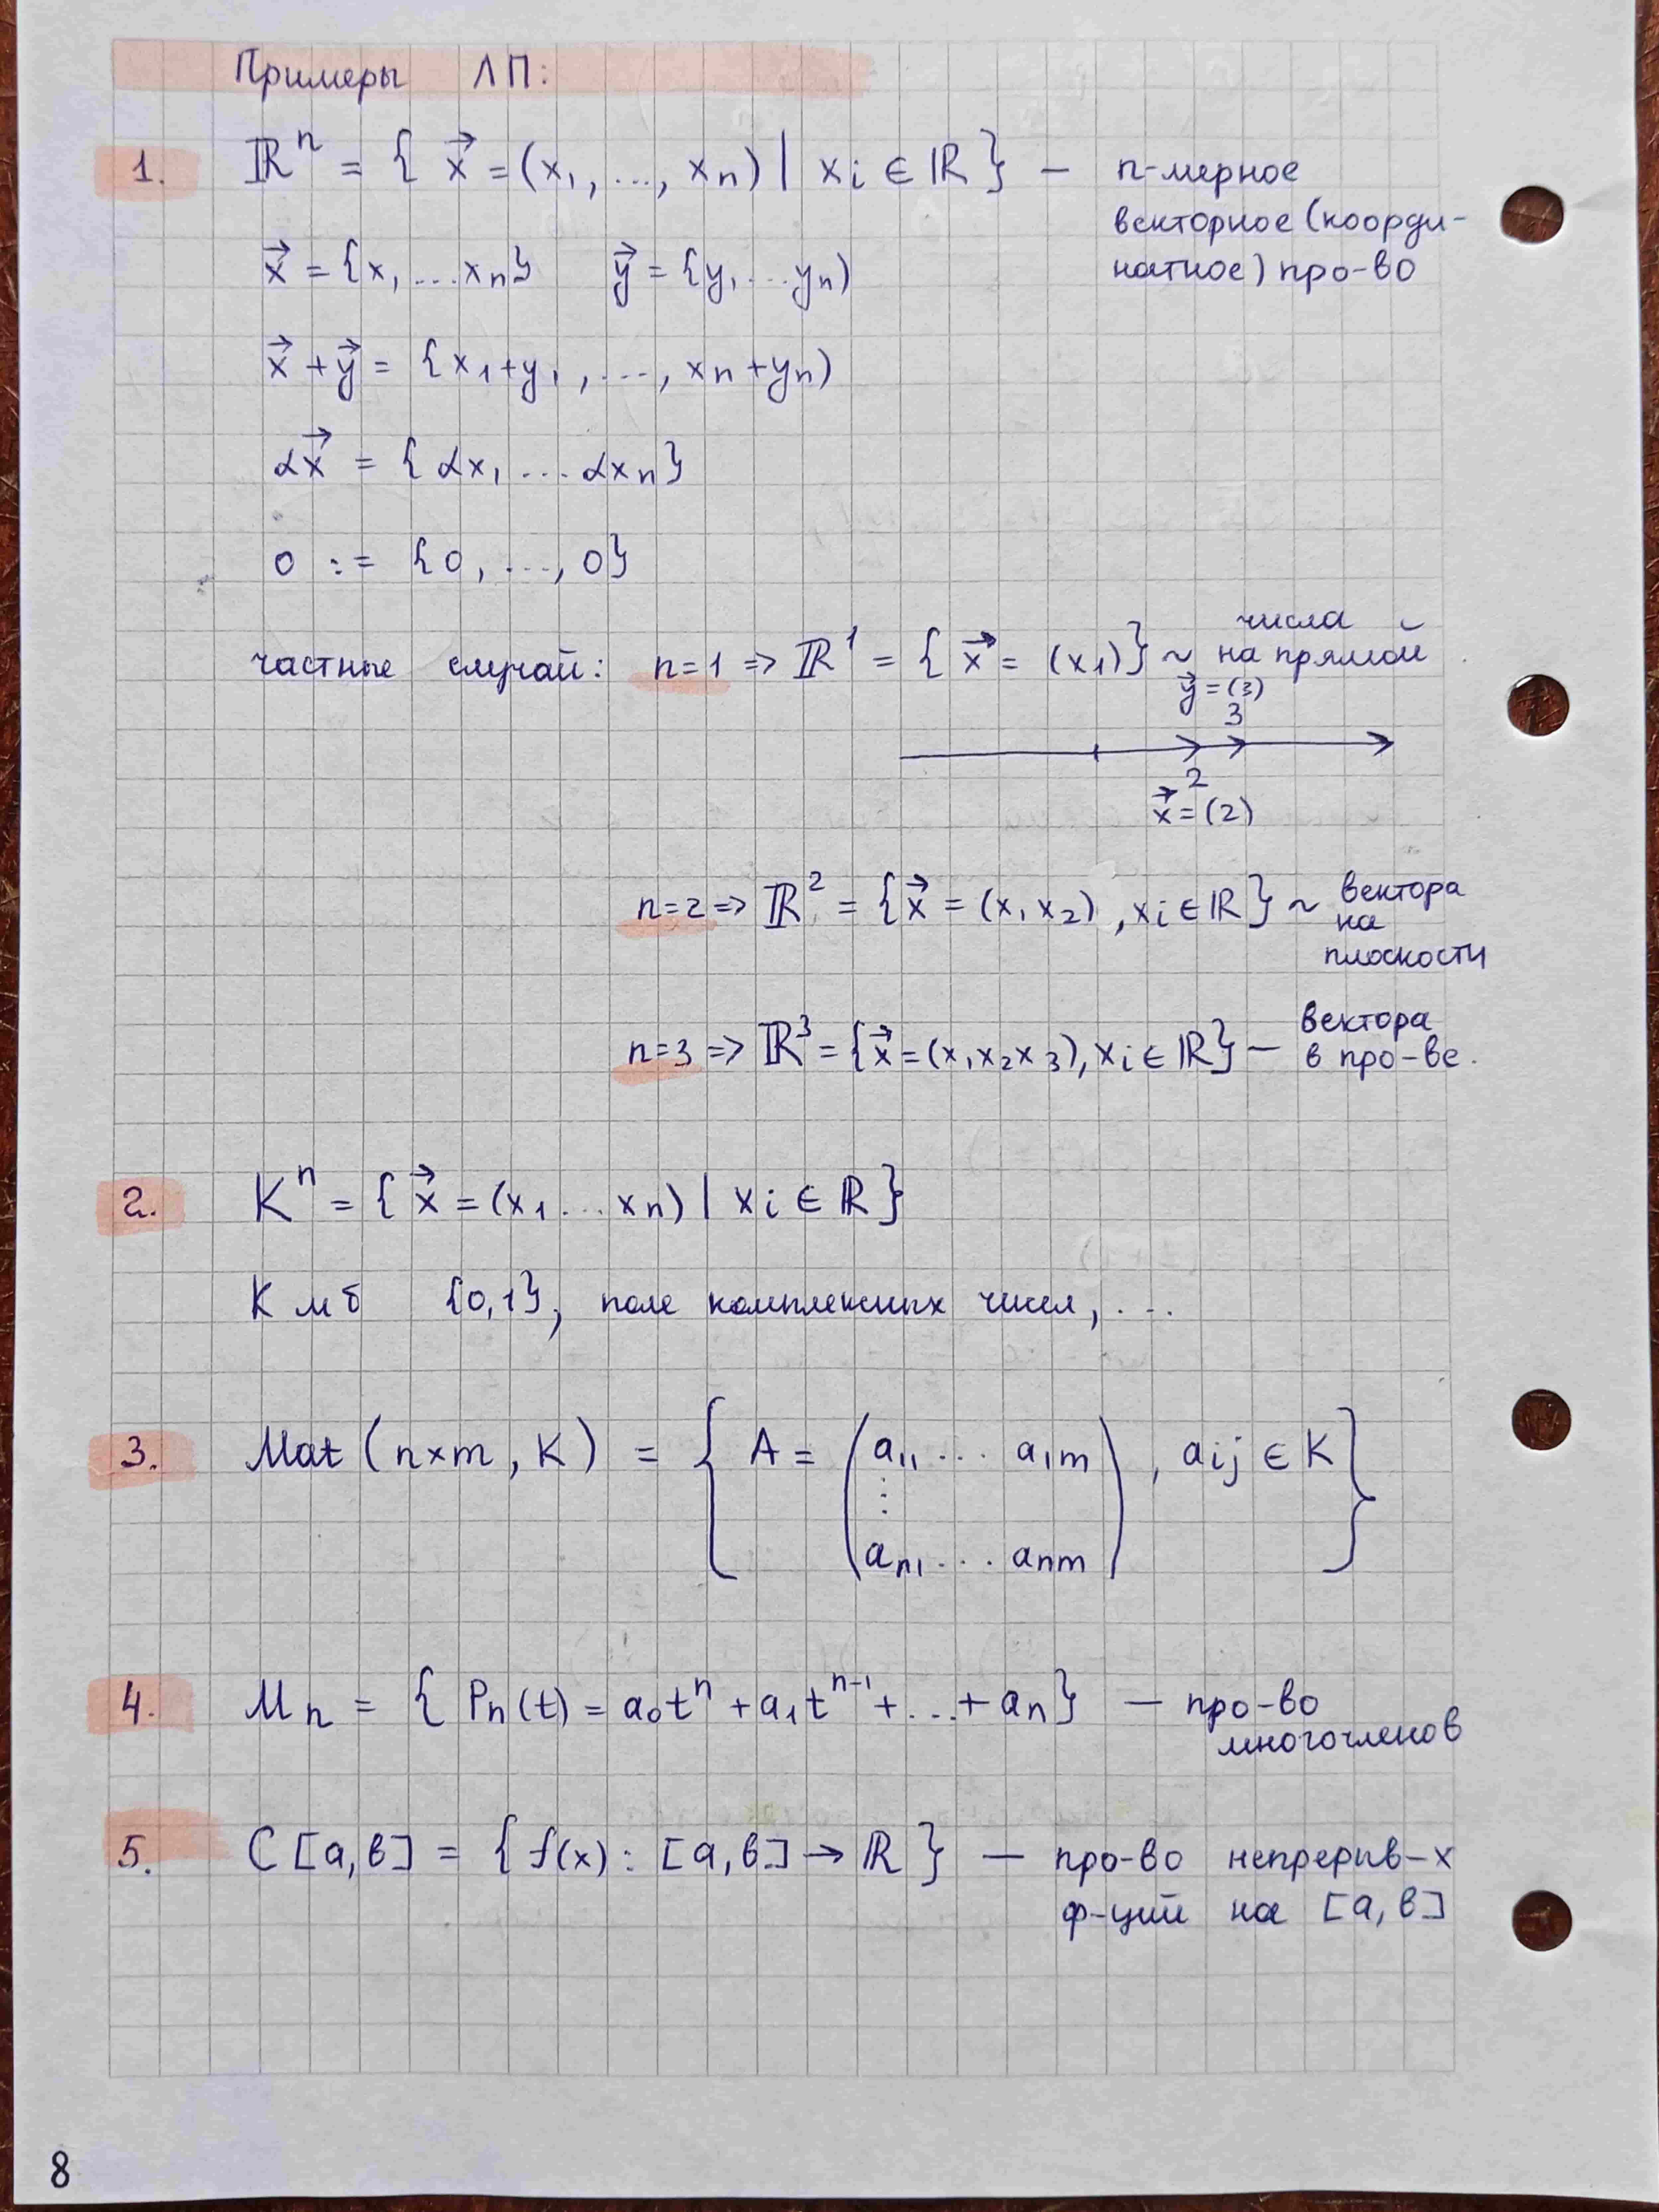 Примеры ЛП:
1. ℝⁿ = { x⃗ = (x₁, ..., xₙ) | xᵢ ∈ ℝ } — n-мерное
векторное (коорди-
натное) про-во
x⃗ = {x₁ ... xₙ} y⃗ = {y₁ ... yₙ)
x⃗ + y⃗ = {x₁+y₁, ..., xₙ+yₙ)
αx⃗ = {αx₁ ... αxₙ}
0 := {0, ..., 0}
числа
частные случай: n=1 => ℝ¹ = { x⃗ = (x₁)} ~ на прямой
y⃗ = (3)
3
2
x⃗ = (2)
n=2 => ℝ² = {x⃗ = (x₁ x₂), xᵢ ∈ ℝ} ~ вектора
на
плоскости
n=3 => ℝ³ = {x⃗ = (x₁ x₂ x₃), xᵢ ∈ ℝ} — вектора
в про-ве.
2. Kⁿ = { x⃗ = (x₁ ... xₙ) | xᵢ ∈ ℝ }
K мб {0,1}, поле комплексных чисел, ...
3. Mat (n×m, K) = { A = ( a₁₁ ... a₁ₘ
⋮
aₙ₁ ... aₙₘ ) , aᵢⱼ ∈ K }
4. Mₙ = { Pₙ(t) = a₀tⁿ + a₁tⁿ⁻¹ + ... + aₙ } — про-во
многочленов
5. C[a,b] = { f(x): [a,b] → ℝ } — про-во непрерыв-х
ф-ций на [a,b]
8